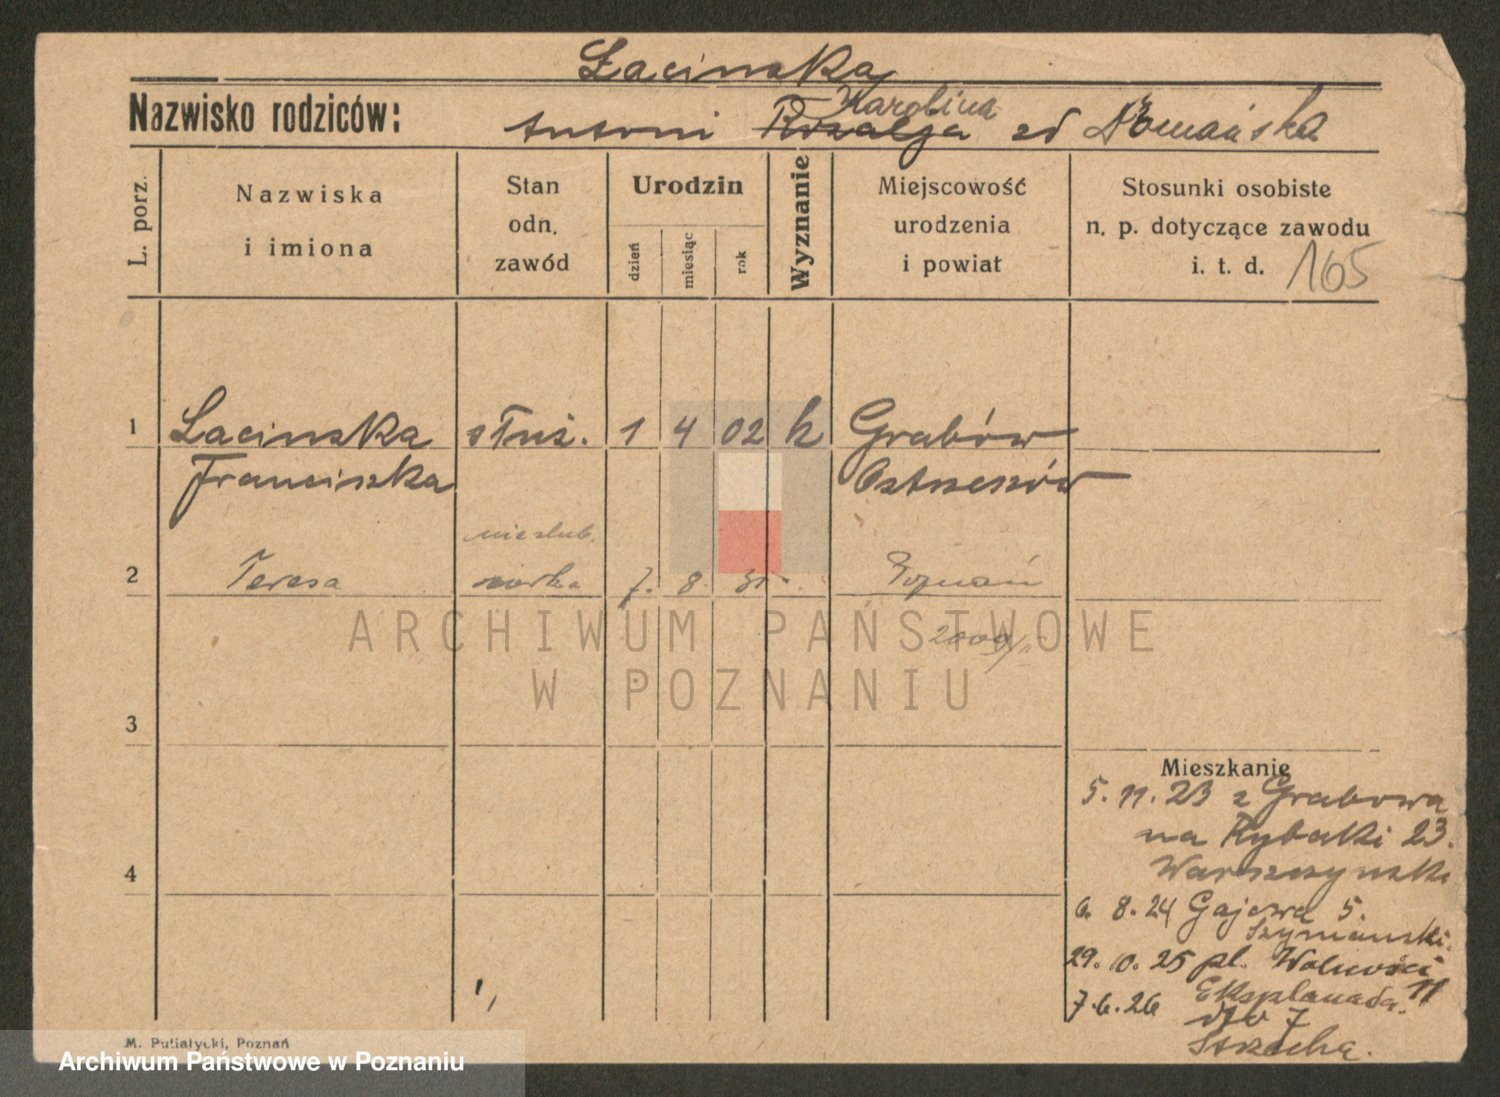 Łacinska
Nazwisko rodziców:
Antoni Rozalja Karolina zd Domańska
L. porz.
Nazwiska
i imiona
Stan
odn.
zawód
Urodzin
dzień
miesiąc
rok
Wyznanie
Miejscowość
urodzenia
i powiat
Stosunki osobiste
n. p. dotyczące zawodu
i. t. d.
165
1 Łacinska służ. 1 4 02 k Grabów
Franciszka Ostrzeszów
nieślub.
2 Teresa corka 7. 8. 31. Poznań
2009/
3
Mieszkanie
5. 11. 23 z Grabowa
na Rybaki 23.
Warszczynski
4
6. 8. 24 Gajowa 5.
Szymanski.
29. 10. 25 pl. Wolności 11
7. 6. 26 Eksplanada.
7
Strzecha.
M. Putiatycki, Poznań
ARCHIWUM PAŃSTWOWE
W POZNANIU
Archiwum Państwowe w Poznaniu